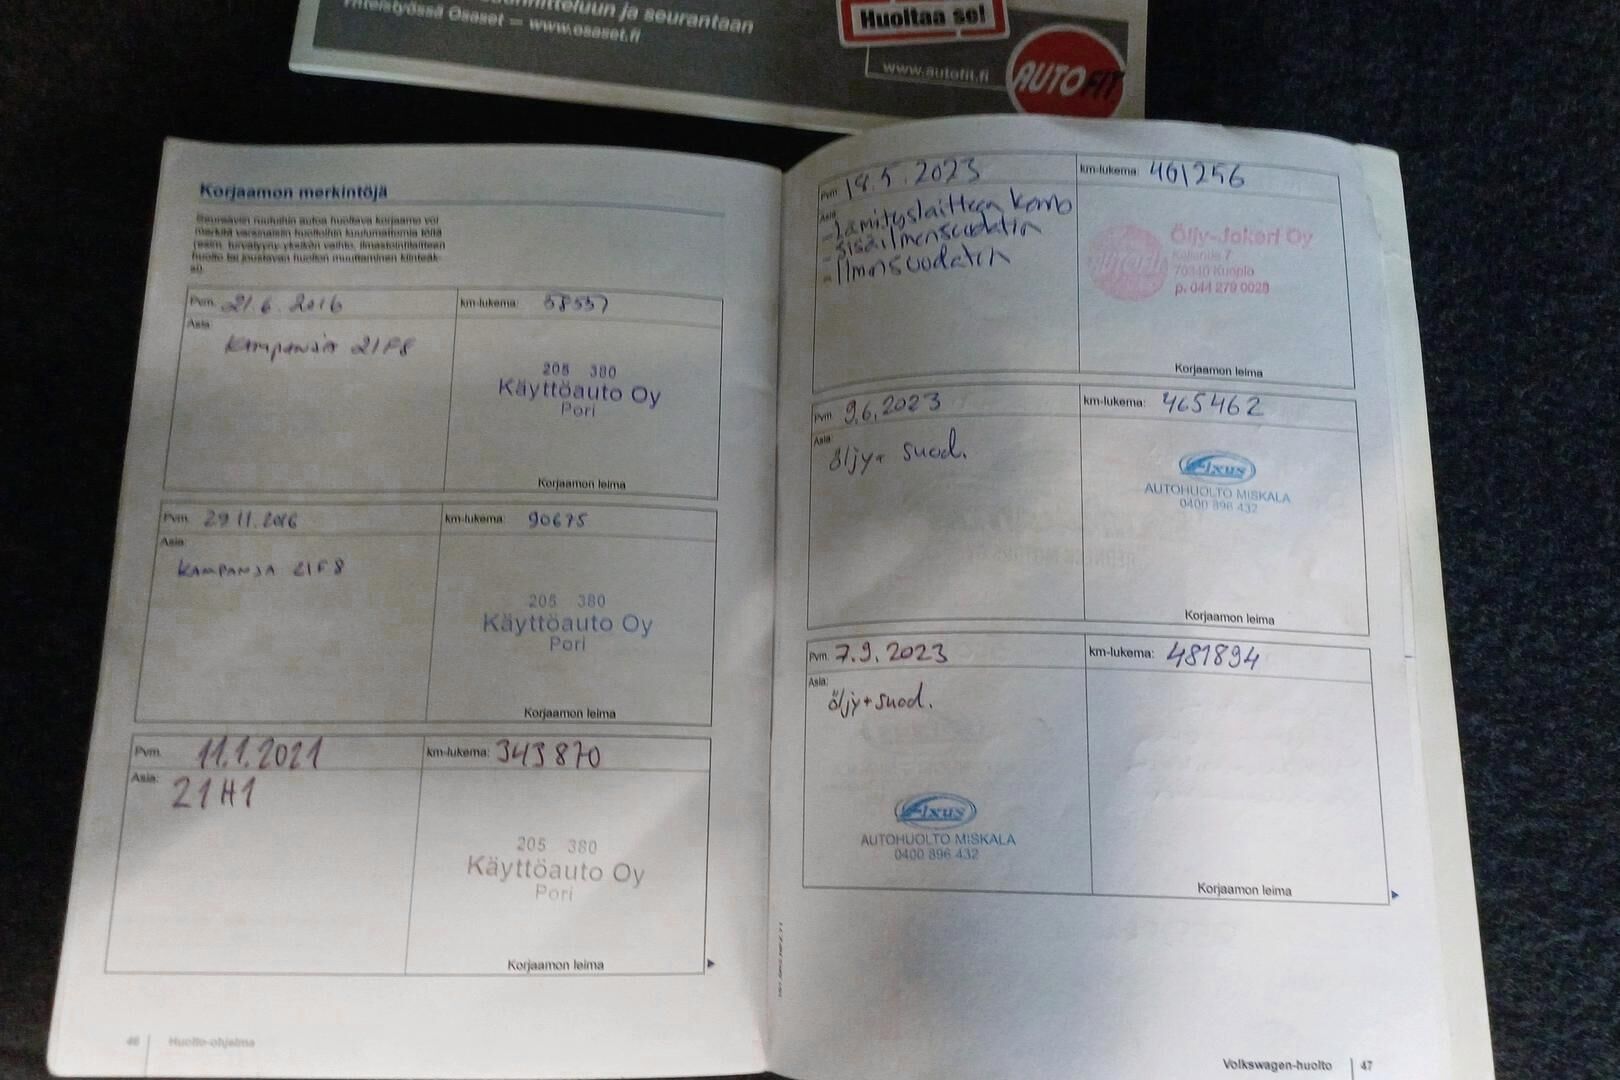 nnitteluun ja seurantaan
Yhteistyössä Osaset — www.osaset.fi
Huoltaa se!
www.autofit.fi
AUTOFIT
Korjaamon merkintöjä
Seuraaviin ruutuihin autoa huoltava korjaamo voi
merkitä varsinaisiin huoltoihin kuulumattomia töitä
(esim. turvatyyny-yksikön vaihto, ilmastointilaitteen
huolto tai joustavan huollon muuttaminen kiinteäk-
si).
Pvm. 21.6.2016 km-lukema: 58557
Asia:
KAMPANJA 21F8
205 380
Käyttöauto Oy
Pori
Korjaamon leima
Pvm. 29.11.2016 km-lukema: 90675
Asia:
KAMPANJA 21F8
205 380
Käyttöauto Oy
Pori
Korjaamon leima
Pvm. 11.1.2021 km-lukema: 343870
Asia: 21H1
205 380
Käyttöauto Oy
Pori
Korjaamon leima
46 Huolto-ohjelma
Pvm. 18.5.2023 km-lukema: 461256
Asia:
-Lämityslaitteen
-Sisäilmansuodatin
-Ilmansuodatin
Öljy-Jokeri Oy
Kallantie 7
70340 Kuopio
p. 044 279 0028
Korjaamon leima
Pvm. 9.6.2023 km-lukema: 465462
Asia:
öljy+ suod.
Fixus
AUTOHUOLTO MISKALA
0400 896 432
Korjaamon leima
Pvm. 7.9.2023 km-lukema: 481894
Asia:
öljy+suod.
Fixus
AUTOHUOLTO MISKALA
0400 896 432
Korjaamon leima
Volkswagen-huolto 47